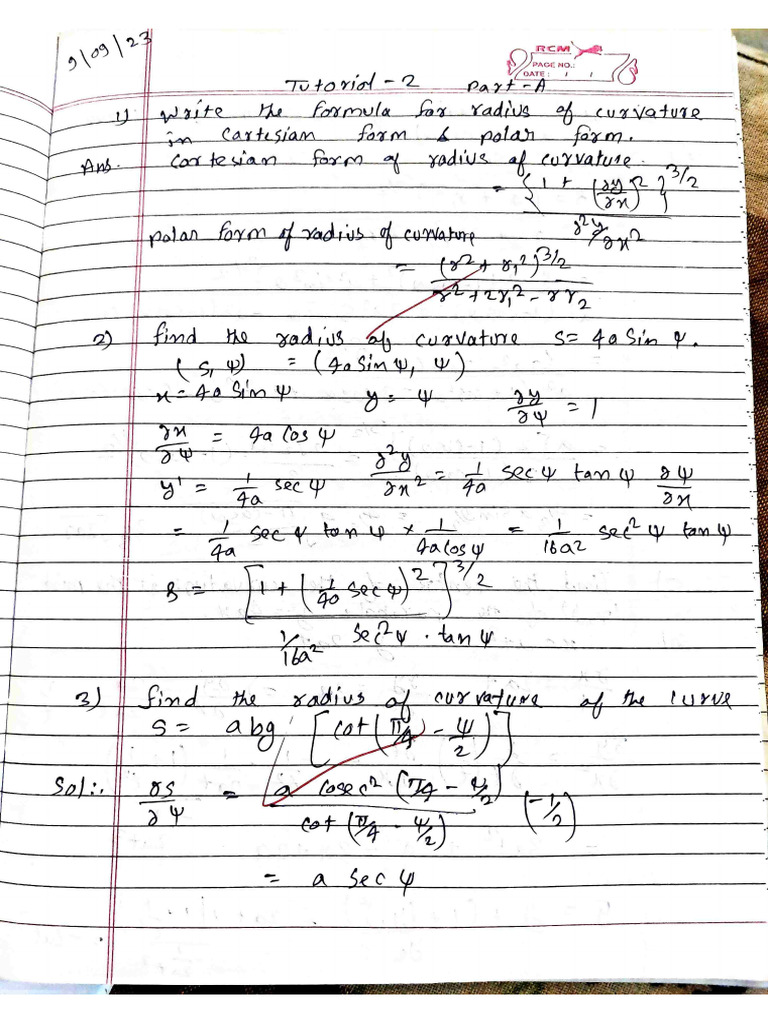 9/09/23
RCM
PAGE NO.:
DATE: / /
Tutorial - 2 Part - A
1) Write the formula for radius of curvature
in Cartesian form & polar form.
Ans. Cartesian form of radius of curvature.
= {1 + (∂y/∂x)²}^3/2 / ∂²y/∂x²
polar form of radius of curvature
= (r² + r₁²)^3/2 / r² + 2r₁² - rr₂
2) find the radius of curvature s = 4a Sin ψ.
(s, ψ) = (4a Sin ψ, ψ)
x = 4a Sin ψ y = ψ ∂y/∂ψ = 1
∂x/∂ψ = 4a Cos ψ
y' = 1/4a sec ψ ∂²y/∂x² = 1/4a sec ψ tan ψ ∂ψ/∂x
= 1/4a sec ψ tan ψ × 1/4a cos ψ = 1/16a² sec² ψ tan ψ
= [1 + (1/4a sec ψ)²]^3/2 / 1/16a² sec² ψ · tan ψ
3) find the radius of curvature of the curve
s = a log [cot (π/4 - ψ/2)]
Sol:. ∂s/∂ψ = a cosec² (π/4 - ψ/2) / cot (π/4 - ψ/2) (-1/2)
= a sec ψ